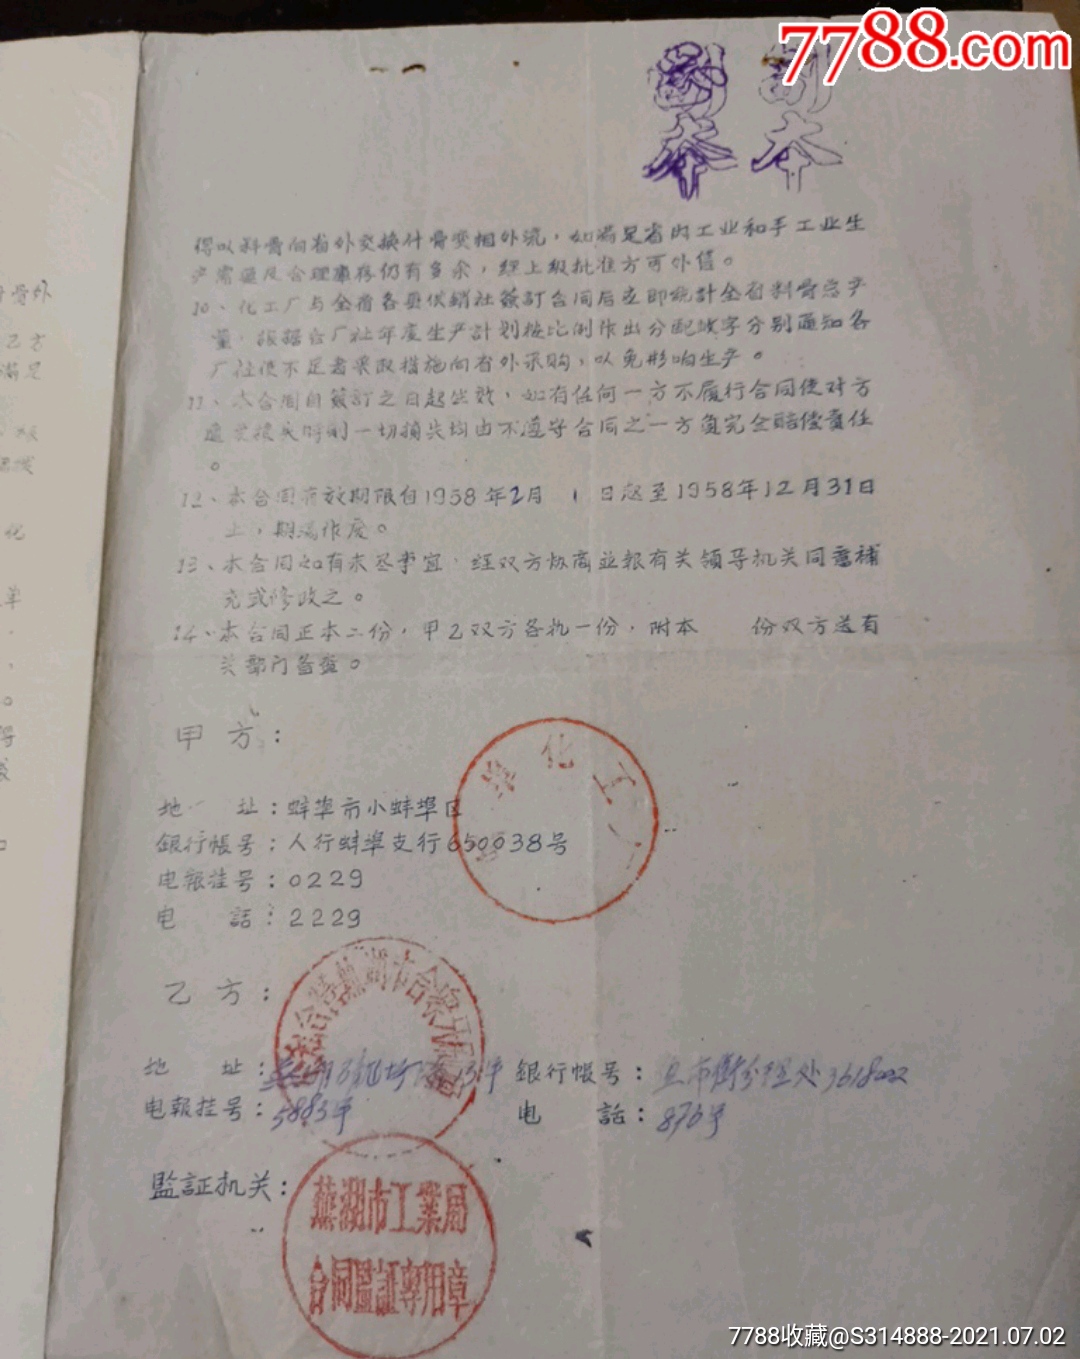 7788.com
副本 副本
得以料骨向省外交换什骨变相外流，如满足省内工业和手工业生
产需要及合理库存仍有多余，经上级批准方可外售。
10、化工厂与全省各县供销社簽訂合同后立即統計全省料骨总产
量，根据各厂社年度生产計划按比例作出分配数字分别通知各
厂社使不足者采取措施向省外采购，以免形响生产。
11、本合同自簽訂之日起生效，如有任何一方不履行合同使对方
遭受損失时則一切損失均由不遵守合同之一方負完全賠偿責任
。
12、本合同有效期限自1958年2月 1 日起至1958年12月31日
止，期满作废。
13、本合同如有未尽事宜，经双方协商並报有关领导机关同意補
充或修改之。
14、本合同正本二份，甲乙双方各执一份，附本 份双方送有
关部门备查。
甲方：
化工厂
地 址：蚌埠市小蚌埠区
銀行帳号：人行蚌埠支行650038号
电報挂号：0229
电 話：2229
乙方：
地 址： 銀行帳号： 3618002
电報挂号：5883号 电 話：876号
監証机关：
蕪湖市工業局
合同監証專用章
7788收藏@S314888-2021.07.02